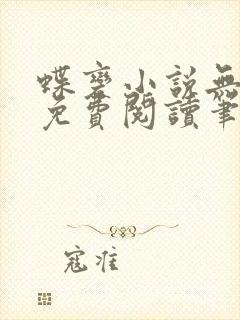 蝶变小說無
免費閱讀筆
寇准